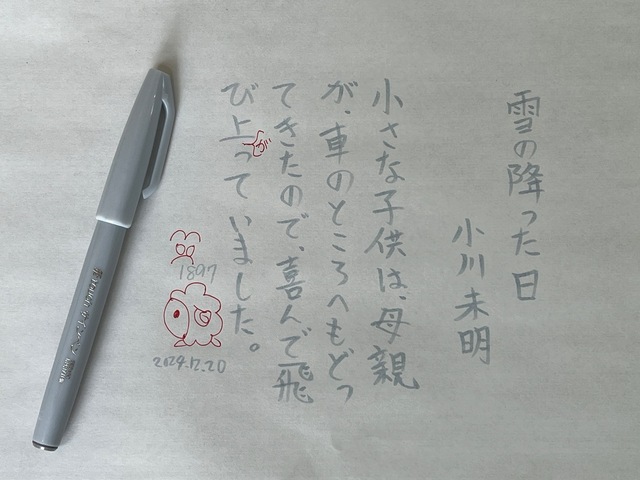 雪の降った日
小川未明
小さな子供は、母親
が、車のところへもどっ
てきたので、喜んで飛
び上がっていました。
1897
2024.12.20